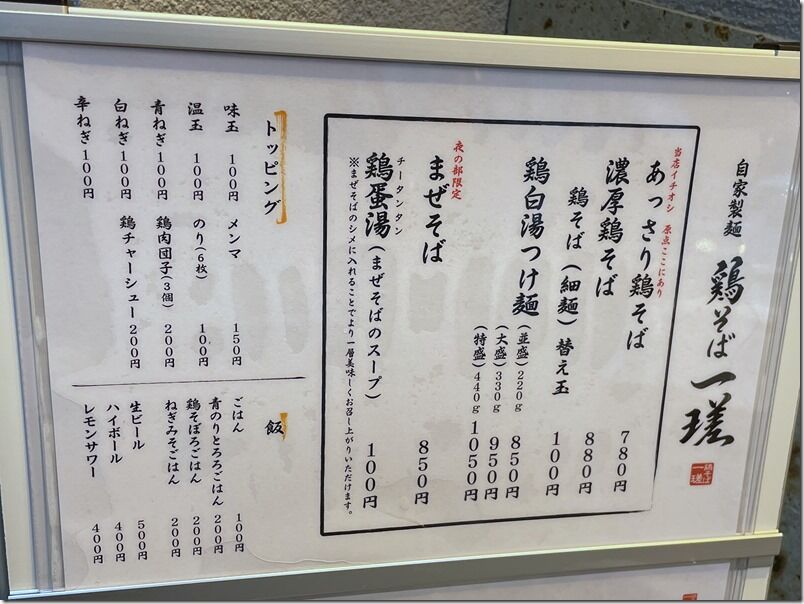 自家製麺
鶏そば一瑳
鶏そば
一瑳
当店イチオシ 原点ここにあり
あっさり鶏そば 780円
濃厚鶏そば 880円
鶏そば(細麺)替え玉 100円
鶏白湯つけ麺 (並盛)220g 850円
(大盛)330g 950円
(特盛)440g 1050円
夜の部限定
まぜそば 850円
チータンタン
鶏蛋湯(まぜそばのスープ) 100円
※まぜそばのシメに入れることでより一層美味しくお召し上がりいただけます。
トッピング
味玉 100円 メンマ 150円
温玉 100円 のり(6枚) 100円
青ねぎ 100円 鶏肉団子(3個) 200円
白ねぎ 100円 鶏チャーシュー 200円
辛ねぎ 100円
飯
ごはん 100円
青のりとろろごはん 200円
鶏そぼろごはん 200円
ねぎみそごはん 200円
生ビール 500円
ハイボール 400円
レモンサワー 400円